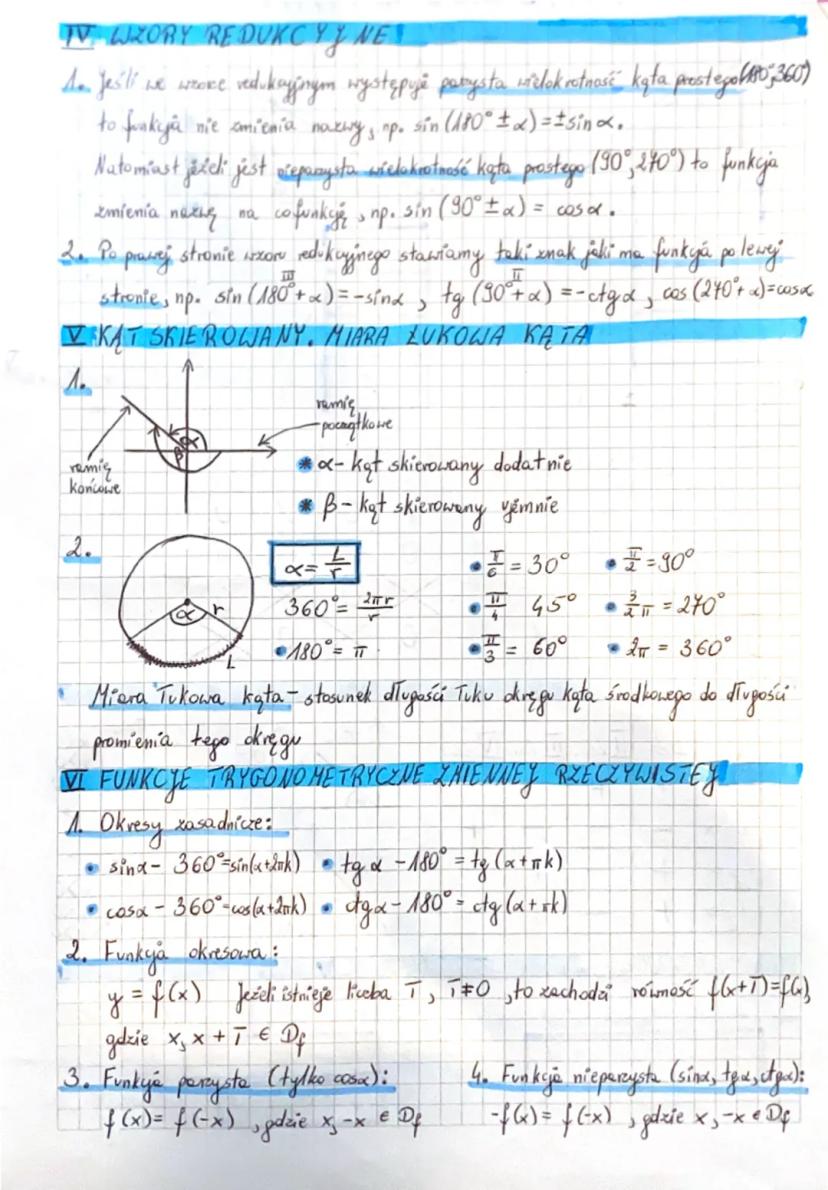 IV WZORY REDUKCYJNE
1. Jeśli we wzorze redukcyjnym występuje parzysta wielokrotność kąta prostego (180°, 360°)
to funkcja nie zmienia nazwy, np. sin (180° ± α) = ± sin α.
Natomiast jeżeli jest nieparzysta wielokrotność kąta prostego (90°, 270°) to funkcja
zmienia nazwę na cofunkcję, np. sin (90° ± α) = cos α.
2. Po prawej stronie wzoru redukcyjnego stawiamy taki znak jaki ma funkcja po lewej
III II
stronie, np. sin (180° + α) = -sin α, tg (90° + α) = -ctg α, cos (270° + α) = cos α
V KĄT SKIEROWANY. MIARA ŁUKOWA KĄTA
1.
ramię
początkowe
α
β
ramię
końcowe
* α - kąt skierowany dodatnie
* β - kąt skierowany ujemnie
2.
α r
L
α = L/r
360° = 2πr/r
• 180° = π
• π/6 = 30° • π/2 = 90°
• π/4 45° • 3/2 π = 270°
• π/3 = 60° • 2π = 360°
Miara łukowa kąta - stosunek długości łuku okręgu kąta środkowego do długości
promienia tego okręgu
VI FUNKCJE TRYGONOMETRYCZNE ZMIENNEJ RZECZYWISTEJ
1. Okresy zasadnicze:
• sin α - 360° = sin(α + 2πk) • tg α - 180° = tg (α + πk)
• cos α - 360° = cos(α + 2πk) • ctg α - 180° = ctg (α + πk)
2. Funkcja okresowa:
y = f(x) Jeżeli istnieje liczba T, T ≠ 0, to zachodzi równość f(x+T) = f(x),
gdzie x, x + T ∈ Df
3. Funkcja parzysta (tylko cos α): 4. Funkcja nieparzysta (sin α, tg α, ctg α):
f(x) = f(-x), gdzie x, -x ∈ Df -f(x) = f(-x), gdzie x, -x ∈ Df